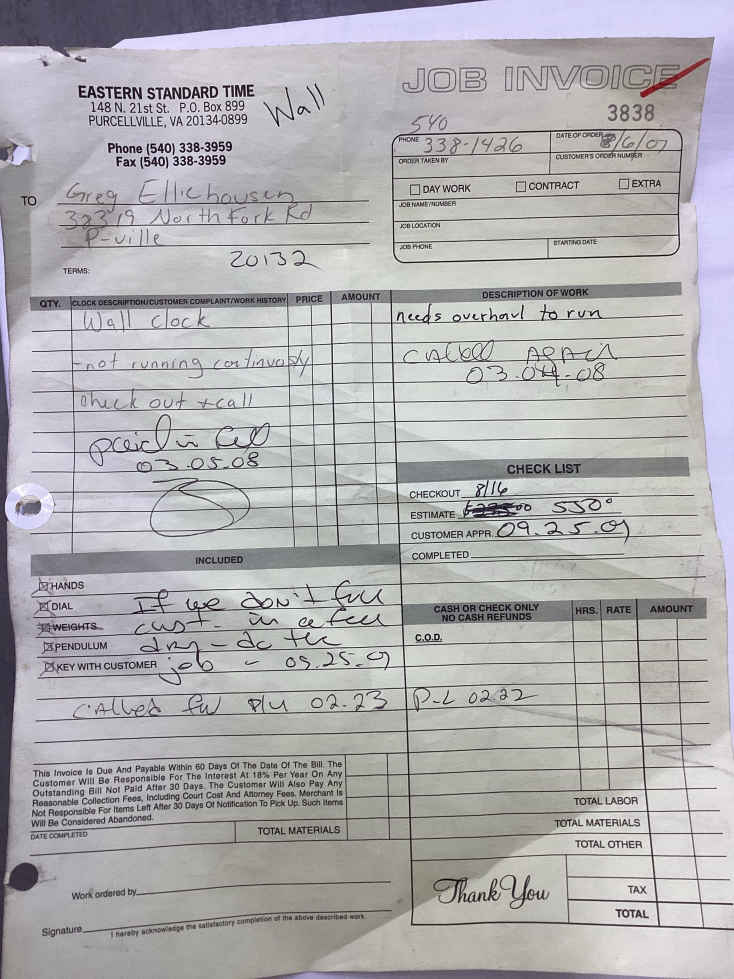 EASTERN STANDARD TIME
148 N. 21st St. P.O. Box 899
PURCELLVILLE, VA 20134-0899
Phone (540) 338-3959
Fax (540) 338-3959
Wall
JOB INVOICE
3838
540
PHONE 338-1426
DATE OF ORDER 8/6/07
ORDER TAKEN BY
CUSTOMER'S ORDER NUMBER
DAY WORK CONTRACT EXTRA
JOB NAME/NUMBER
JOB LOCATION
JOB PHONE STARTING DATE
TO Greg Ellichousen
32319 North Fork Rd
P-ville
20132
TERMS:
QTY. CLOCK DESCRIPTION/CUSTOMER COMPLAINT/WORK HISTORY PRICE AMOUNT DESCRIPTION OF WORK
Wall clock
-not running continuosly
check out + call
paid in full
03.05.08
needs overhaul to run
CAlled AgAin
03.04.08
CHECK LIST
CHECKOUT 8/16
ESTIMATE 550°
CUSTOMER APPR. 09.25.07
COMPLETED
INCLUDED
HANDS
DIAL
WEIGHTS
PENDULUM
KEY WITH CUSTOMER
If we don't
cust. in a few
days - do the
job - 09.25.07
CAlled for P/U 02.23
CASH OR CHECK ONLY
NO CASH REFUNDS
HRS. RATE AMOUNT
C.O.D.
P-L 02.22
This Invoice Is Due And Payable Within 60 Days Of The Date Of The Bill. The
Customer Will Be Responsible For The Interest At 18% Per Year On Any
Outstanding Bill Not Paid After 30 Days. The Customer Will Also Pay Any
Reasonable Collection Fees, Including Court Cost And Attorney Fees. Merchant Is
Not Responsible For Items Left After 30 Days Of Notification To Pick Up. Such Items
Will Be Considered Abandoned.
DATE COMPLETED
TOTAL MATERIALS
TOTAL LABOR
TOTAL MATERIALS
TOTAL OTHER
TAX
TOTAL
Thank You
Work ordered by
Signature
I hereby acknowledge the satisfactory completion of the above described work.